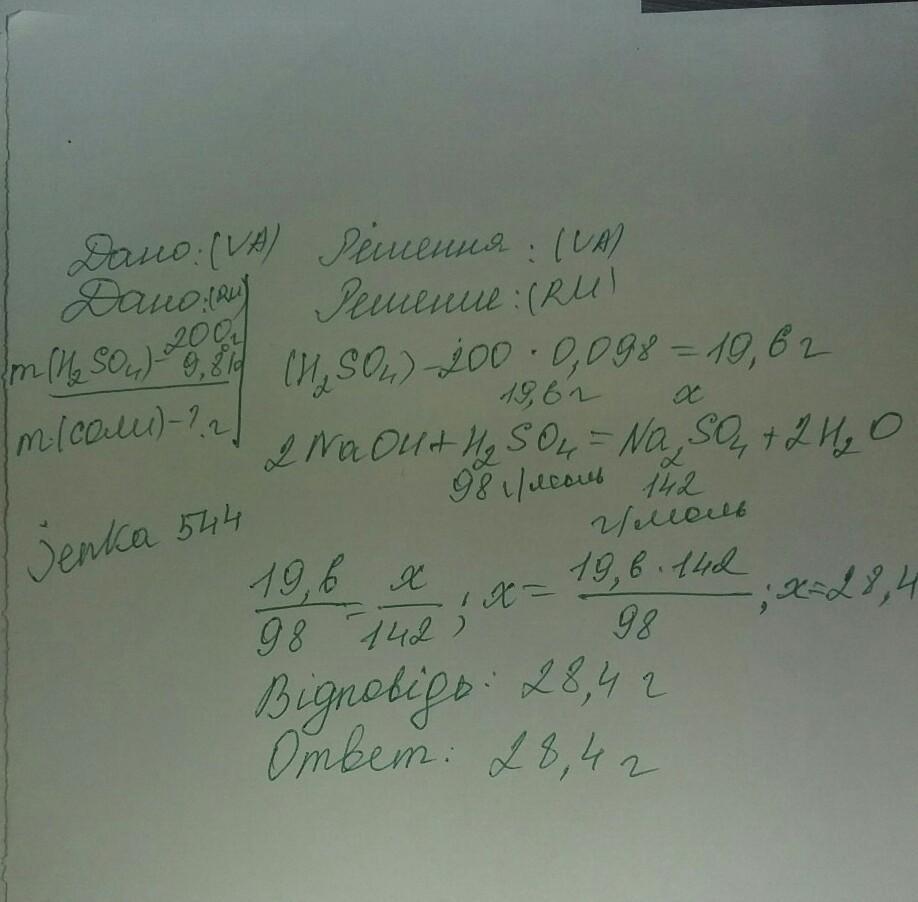 Дано: (UA) Рішення : (UA)
Дано: (RU) Решение: (RU)
m(H₂SO₄) - 200г 9,8% (H₂SO₄) - 200 · 0,098 = 19,6 г
m(соли) - ? г
19,6 г x
2NaOH + H₂SO₄ = Na₂SO₄ + 2H₂O
98 г/моль 142 г/моль
jenka 544
19,6/98 = x/142 ; x = 19,6 · 142/98 ; x = 28,4
Відповідь: 28,4 г
Ответ: 28,4 г